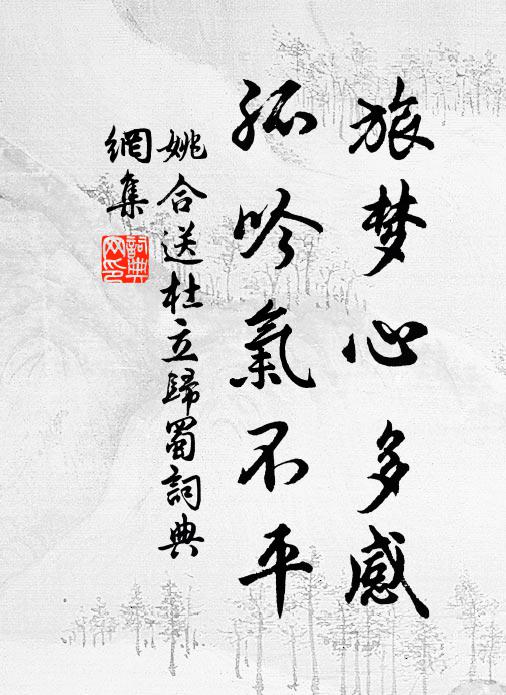 旅梦心多感
孤吟氣不平
姚合送杜立歸蜀詞典
網集
詞典
网印